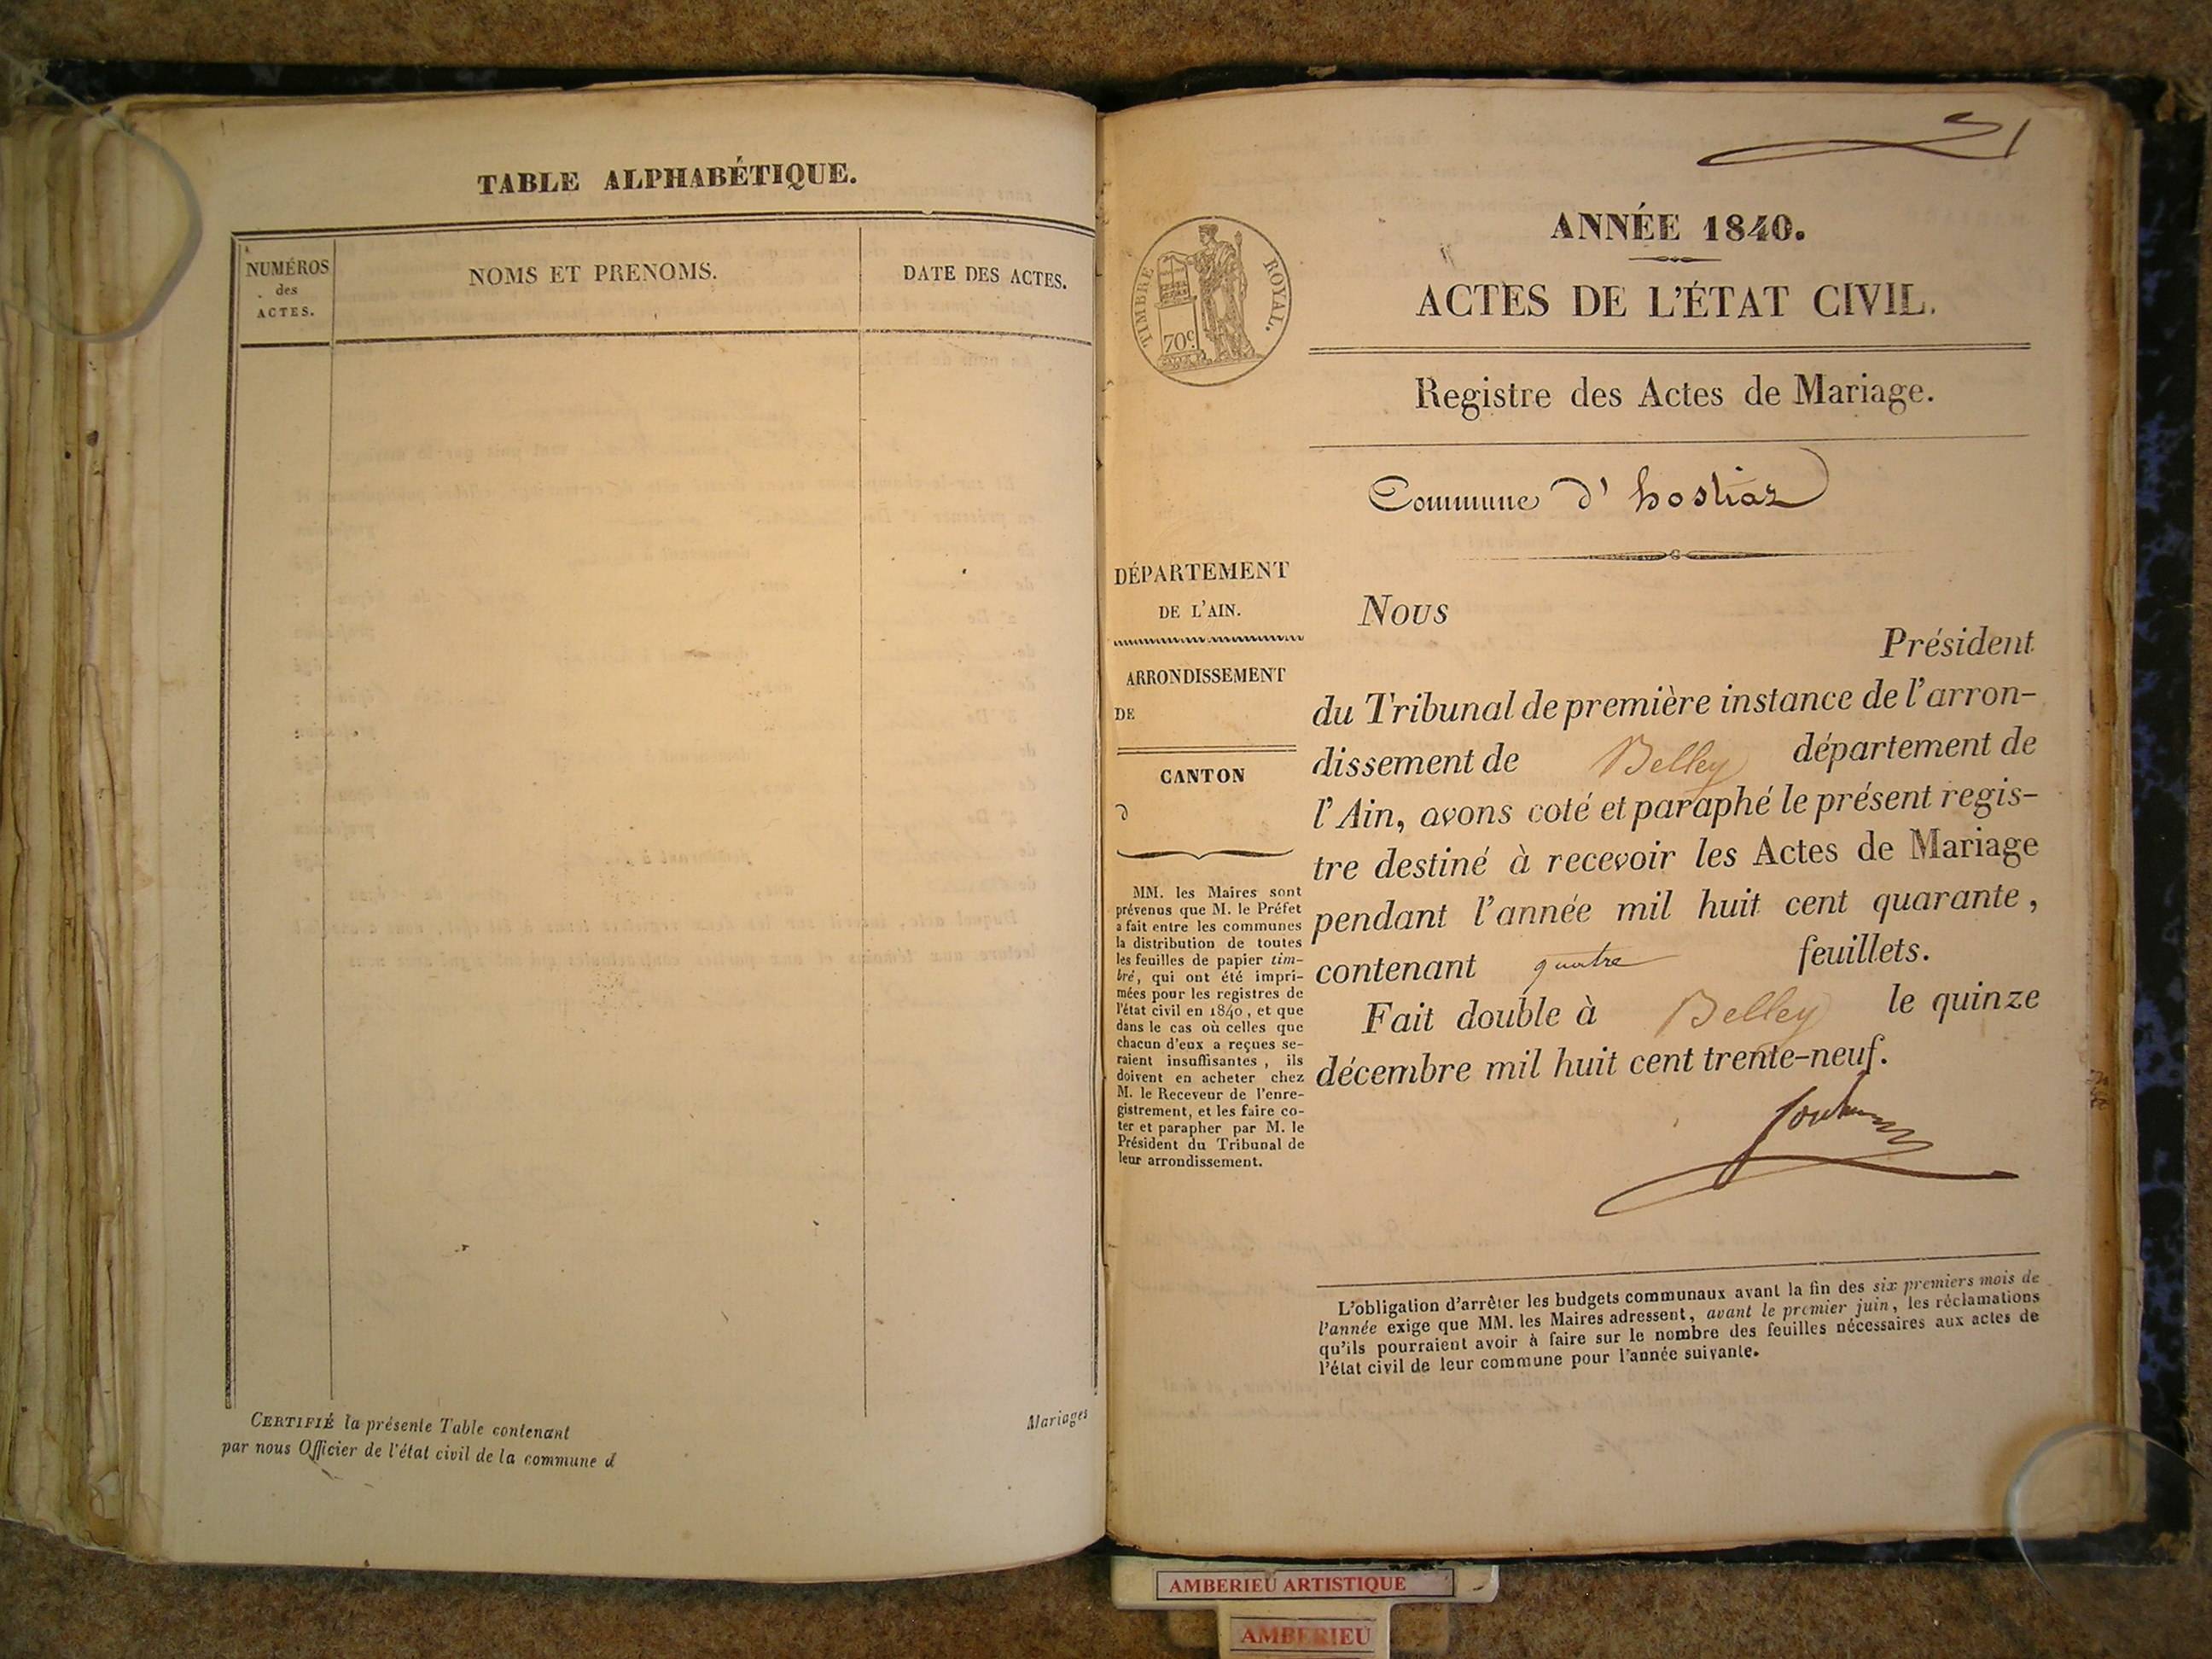 TABLE ALPHABÉTIQUE.
NUMÉROS
des
ACTES.
NOMS ET PRENOMS.
DATE DES ACTES.
CERTIFIÉ la présente Table contenant
par nous Officier de l'état civil de la commune d
Mariages
ANNÉE 1840.
TIMBRE ROYAL.
70c.
ACTES DE L'ÉTAT CIVIL.
Registre des Actes de Mariage.
Commune d'hostiaz
DÉPARTEMENT
DE L'AIN.
ARRONDISSEMENT
DE
CANTON
d
MM. les Maires sont
prévenus que M. le Préfet
a fait entre les communes
la distribution de toutes
les feuilles de papier tim-
bré, qui ont été impri-
mées pour les registres de
l'état civil en 1840, et que
dans le cas où celles que
chacun d'eux a reçues se-
raient insuffisantes, ils
doivent en acheter chez
M. le Receveur de l'enre-
gistrement, et les faire co-
ter et parapher par M. le
Président du Tribunal de
leur arrondissement.
Nous
Président
du Tribunal de première instance de l'arron-
dissement de Belley département de
l'Ain, avons coté et paraphé le présent regis-
tre destiné à recevoir les Actes de Mariage
pendant l'année mil huit cent quarante,
contenant quatre feuillets.
Fait double à Belley le quinze
décembre mil huit cent trente-neuf.
L'obligation d'arrêter les budgets communaux avant la fin des six premiers mois de
l'année exige que MM. les Maires adressent, avant le premier juin, les réclamations
qu'ils pourraient avoir à faire sur le nombre des feuilles nécessaires aux actes de
l'état civil de leur commune pour l'année suivante.
AMBERIEU ARTISTIQUE
AMBERIEU